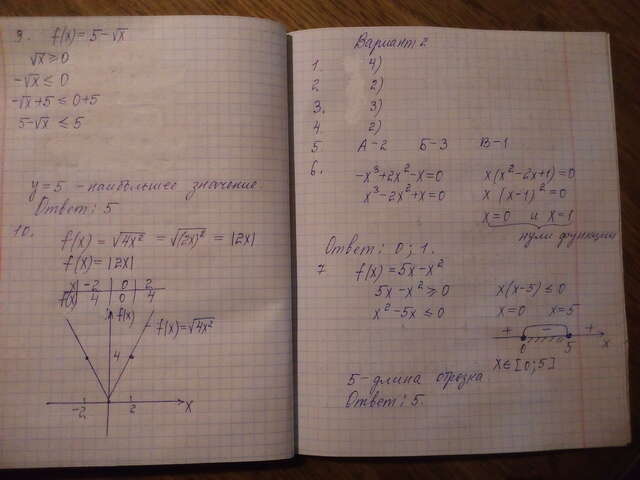 9. f(x) = 5 - √x
√x ≥ 0
-√x ≤ 0
-√x + 5 ≤ 0 + 5
5 - √x ≤ 5
y = 5 - наибольшее значение.
Ответ: 5
10. f(x) = √4x² = √(2x)² = |2x|
f(x) = |2x|
x | -2 | 0 | 2
f(x) | 4 | 0 | 4
f(x)
f(x) = √4x²
4
-2 2 x
Вариант 2
1. 4)
2. 2)
3. 3)
4. 2)
5. А-2 Б-3 В-1
6. -x³ + 2x² - x = 0 x(x² - 2x + 1) = 0
x³ - 2x² + x = 0 x (x - 1)² = 0
x = 0 и x = 1
нули функции
Ответ: 0; 1.
7 f(x) = 5x - x²
5x - x² ≥ 0 x(x - 5) ≤ 0
x² - 5x ≤ 0 x = 0 x = 5
+ - +
0 5 x
x ∈ [0; 5]
5 - длина отрезка
Ответ: 5.